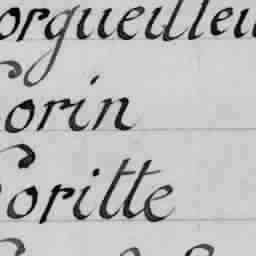 orgueilleu
orin
oritte